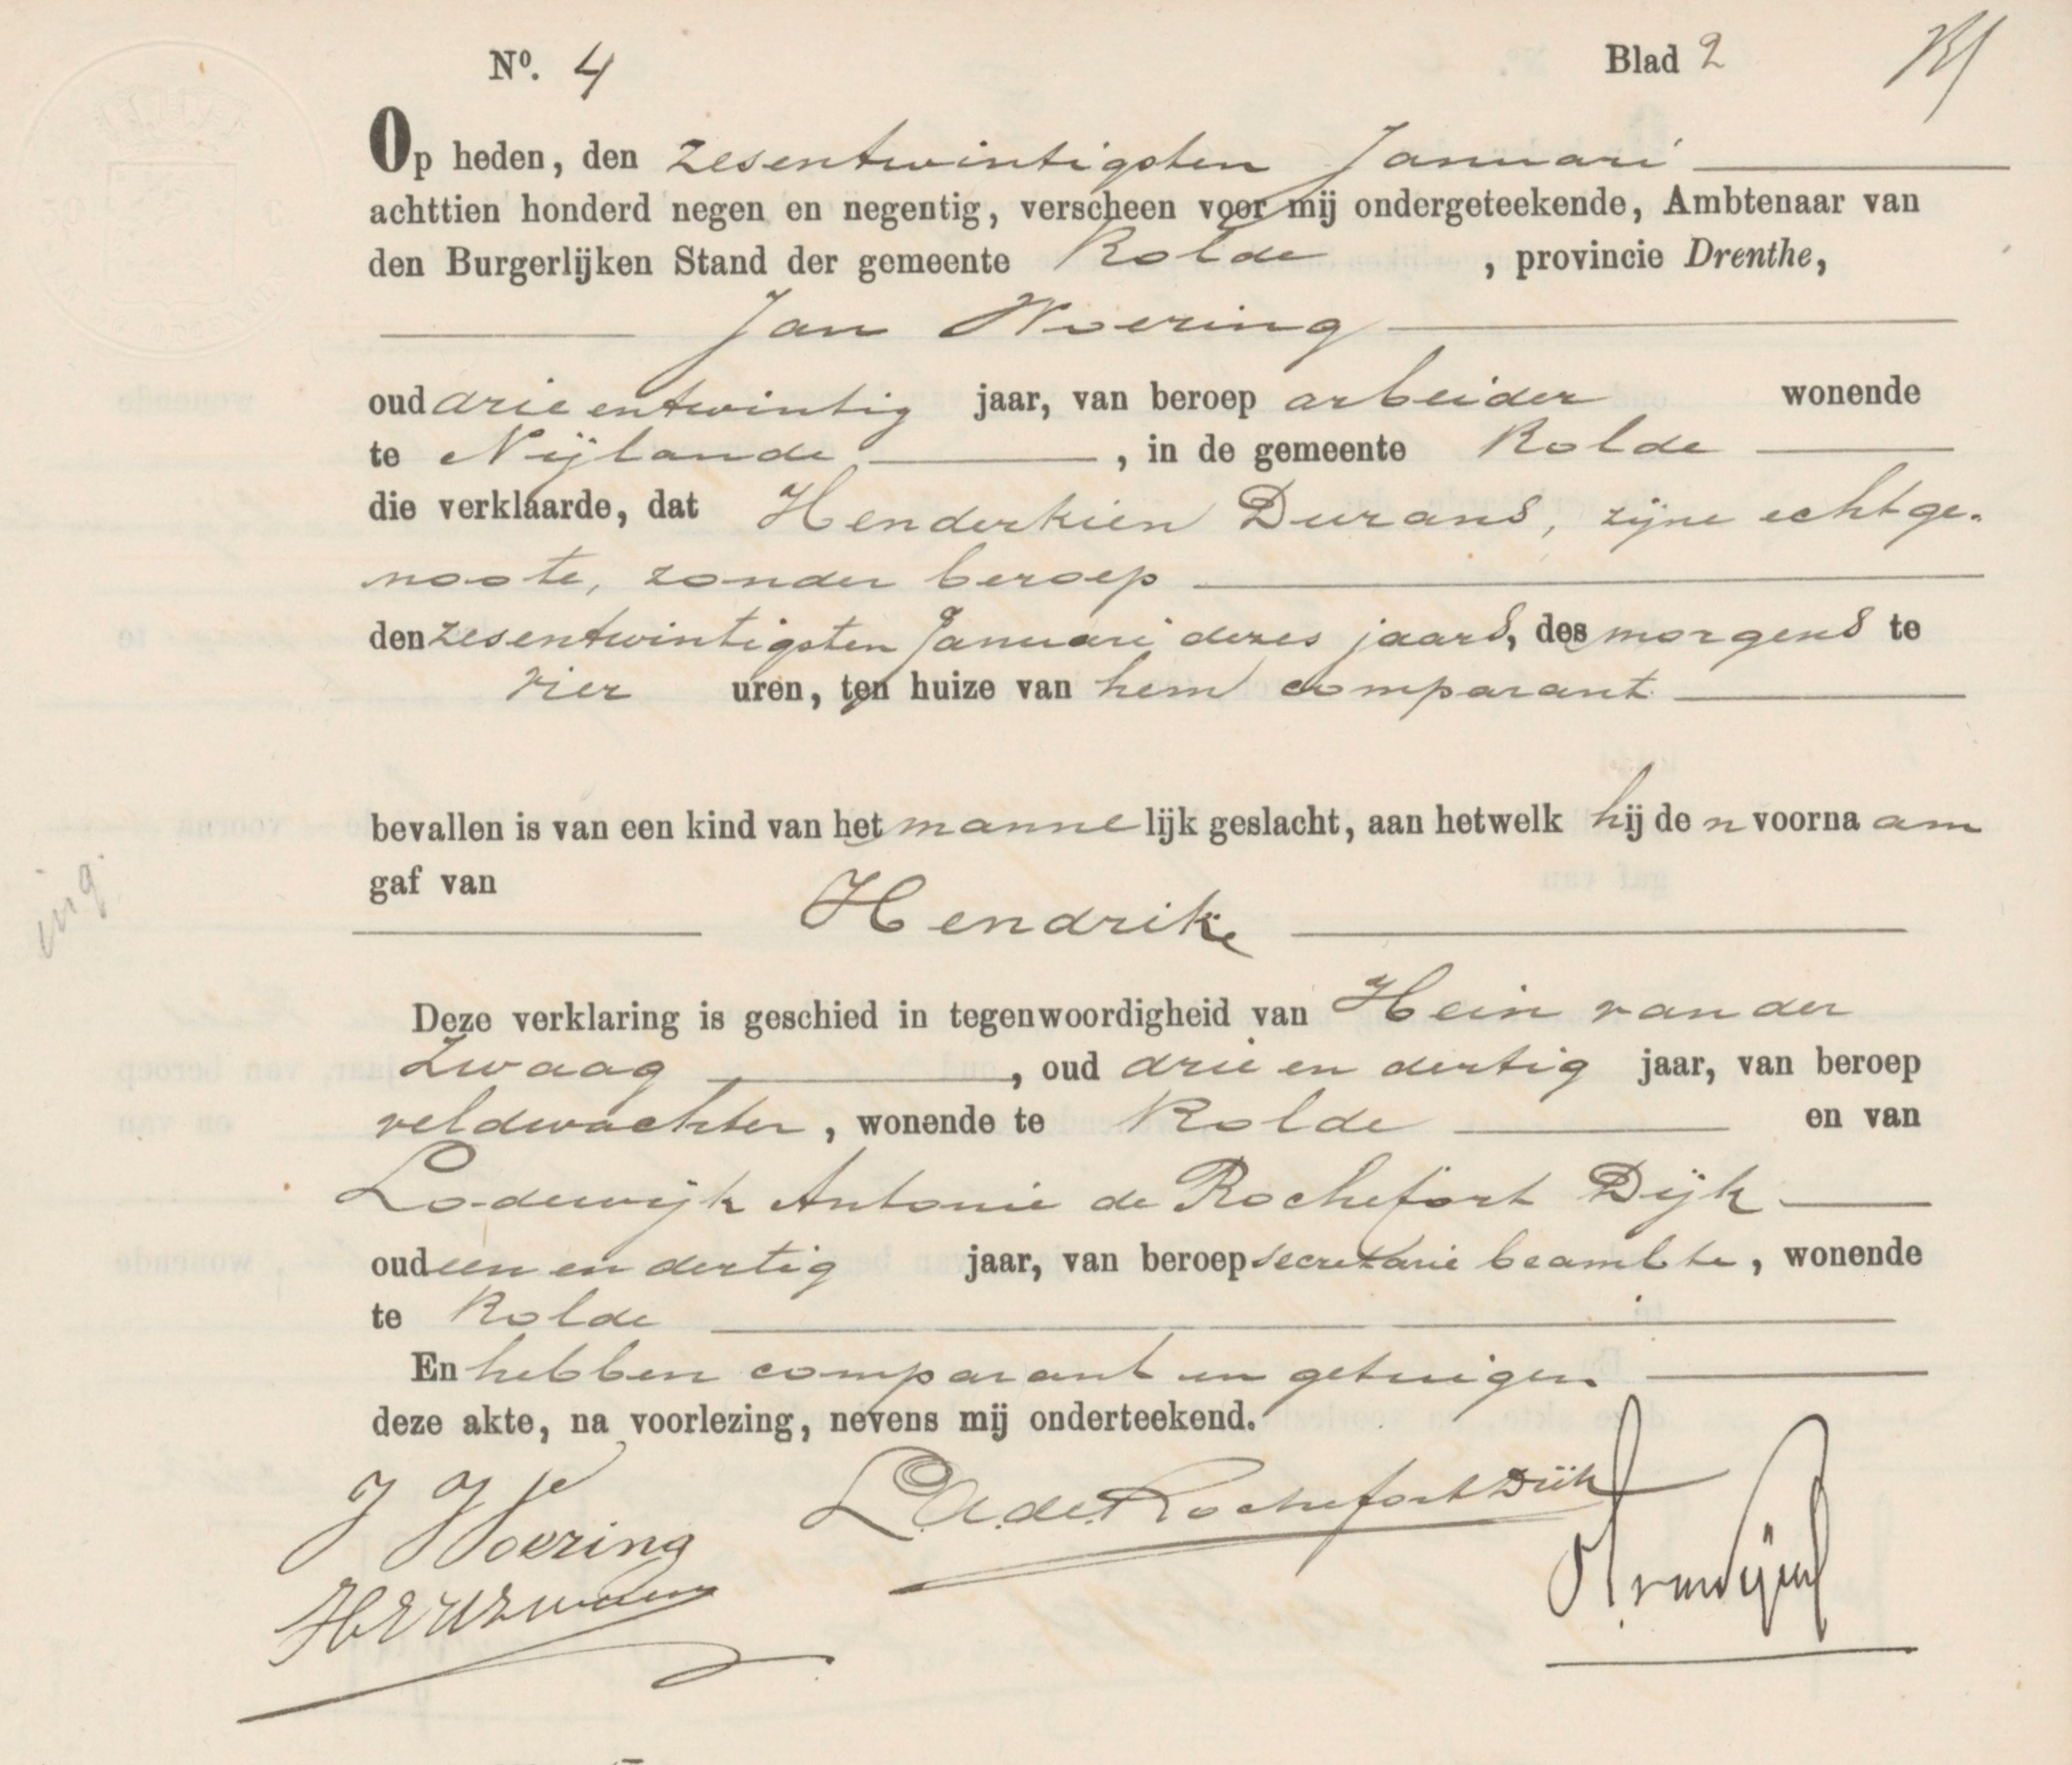 Nº. 4 Blad 2
Op heden, den zesentwintigsten Januari
achttien honderd negen en negentig, verscheen voor mij ondergeteekende, Ambtenaar van
den Burgerlijken Stand der gemeente Rolde, provincie Drenthe,
Jan Woering
oud drie entwintig jaar, van beroep arbeider wonende
te Nijlande, in de gemeente Rolde
die verklaarde, dat Henderkien Durans, zijne echtge-
noote, zonder beroep
den zesentwintigsten Januari dezes jaars, des morgens te
vier uren, ten huize van hem comparant
bevallen is van een kind van het mannelijk geslacht, aan hetwelk hij den voornaam
gaf van
Hendrik
Deze verklaring is geschied in tegenwoordigheid van Hein van der
Zwaag, oud drie en dertig jaar, van beroep
veldwachter, wonende te Rolde en van
Lodewijk Antonie de Rochefort Dijk
oud een en dertig jaar, van beroep secretarie beambte, wonende
te Rolde
En hebben comparant en getuigen
deze akte, na voorlezing, nevens mij onderteekend.
J Woering L.A. de Rochefort Dijk
ing.